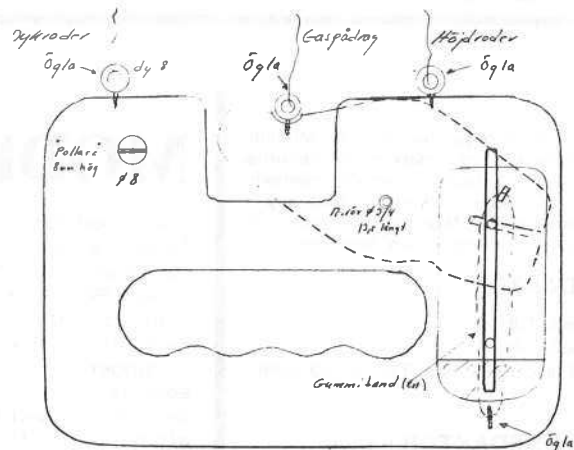 Dykroder
Gaspådrag
Höjdroder
Ögla
dy 8
Ögla
Ögla
"Pollare"
8mm hög
ø8
rör ø 3/4
långt
Gummiband
Ögla